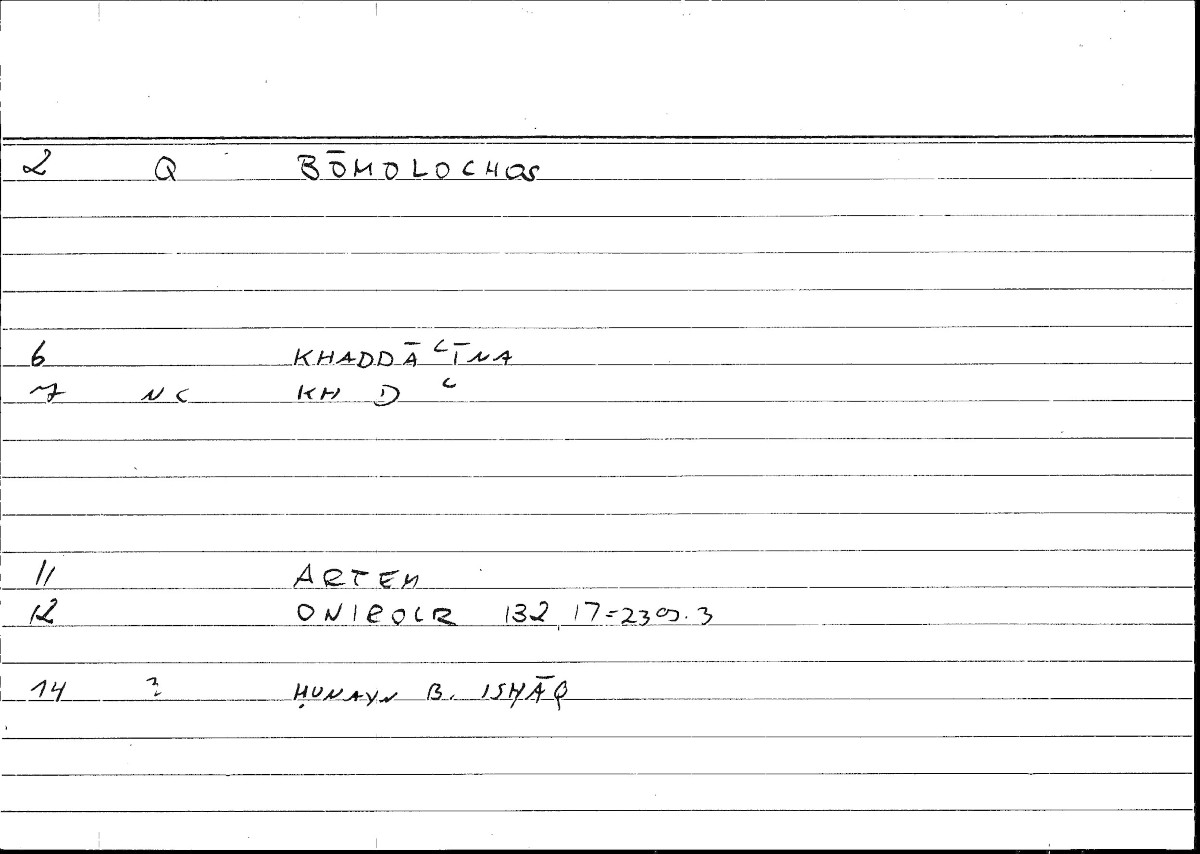 2 Q BŌMOLOCHOS
6 KHADDĀʿĪNA
7 NC KH D ʿ
11 ARTEM
12 ONIROCR 132,17=239.3
14 ? ḤUNAYN B. ISḤĀQ